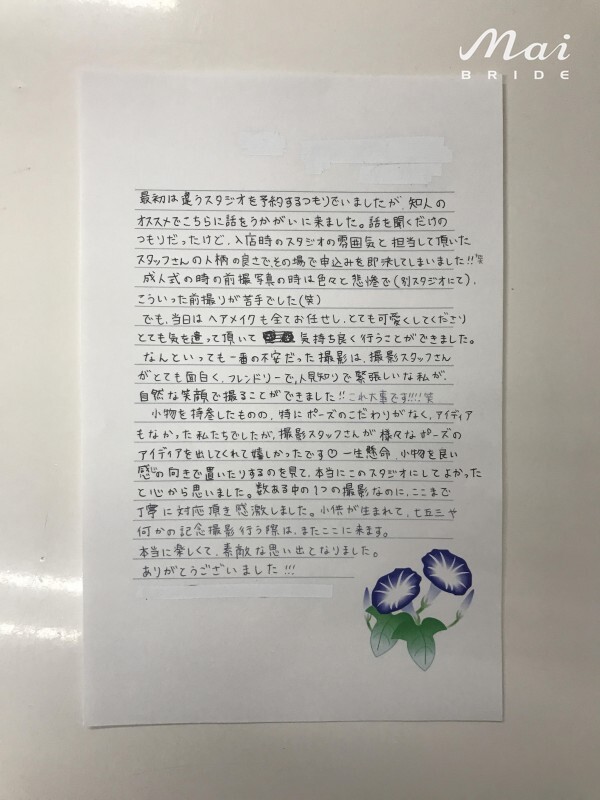 Mai
BRIDE
最初は違うスタジオを予約するつもりでいましたが、知人の
オススメでこちらに話をうかがいに来ました。話を聞くだけの
つもりだったけど、入店時のスタジオの雰囲気と担当して頂いた
スタッフさんの人柄の良さで、その場で申込みを即決してしまいました!!笑
成人式の時の前撮写真の時は色々と悲惨で(別スタジオにて)、
こういった前撮りが苦手でした(笑)
でも、当日はヘアメイクも全てお任せし、とても可愛くしてくださり
とても気を遣って頂いて 気持ち良く行うことができました。
なんといっても一番の不安だった撮影は、撮影スタッフさん
がとても面白く、フレンドリーで、人見知りで緊張しいな私が、
自然な笑顔で撮ることができました!!これ大事です!!!!笑
小物を持参したものの、特にポーズのこだわりがなく、アイディア
もなかった私たちでしたが、撮影スタッフさんが様々なポーズの
アイディアを出してくれて嬉しかったです♡一生懸命、小物を良い
感じの向きで置いたりするのを見て、本当にこのスタジオにしてよかった
と心から思いました。数ある中の1つの撮影なのに、ここまで
丁寧に対応頂き感激しました。小供が生まれて、七五三や
何かの記念撮影行う際は、またここに来ます。
本当に楽しくて、素敵な思い出となりました。
ありがとうございました!!!